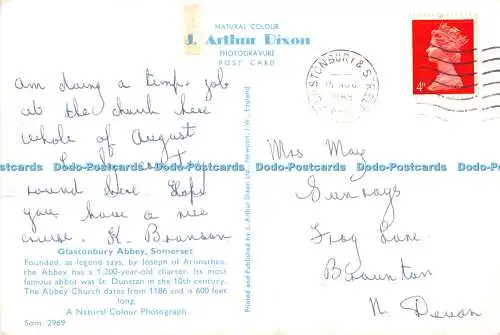 NATURAL COLOUR
J. Arthur Dixon
PHOTOGRAVURE
POST CARD
am doing a temp. job
at the church here
whole of August
country
round here. Hope
you have a nice
cruise. K. Branson
Glastonbury Abbey, Somerset
Founded, as legend says, by Joseph of Arimathea,
the Abbey has a 1,200-year-old charter. Its most
famous abbot was St. Dunstan in the 10th century.
The Abbey Church dates from 1186 and is 600 feet
long
A Natural Colour Photograph
Som. 2969
Printed and Published by J. Arthur Dixon Ltd., Newport, I.W., England
STONBURY & STREET
15 AUG
1969
4d
Mrs May
Sunrays
Frog Lane
Braunton
N. Devon
Postcards Postcards Postcards Postcards Postcards Postcards